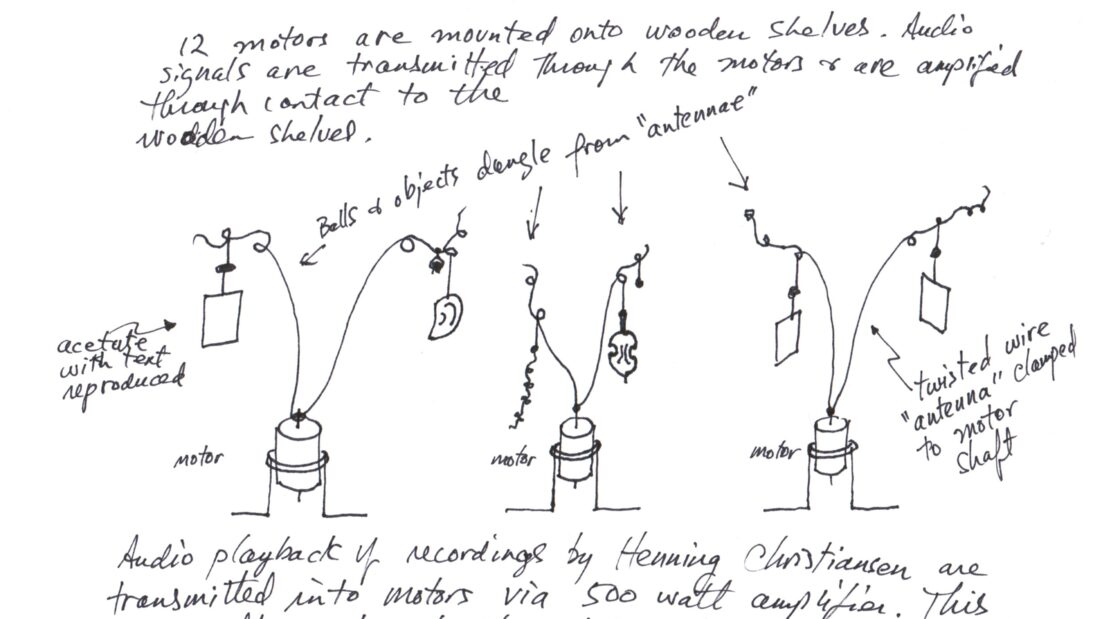 12 motors are mounted onto wooden shelves. Audio
signals are transmitted through the motors & are amplified
through contact to the
wooden shelves.
Bells & objects dangle from "antennae"
acetate
with text
reproduced
twisted wire
"antenna" clamped
to motor
shaft
motor
motor
motor
Audio playback of recordings by Henning Christiansen are
transmitted into motors via 500 watt amplifier. This